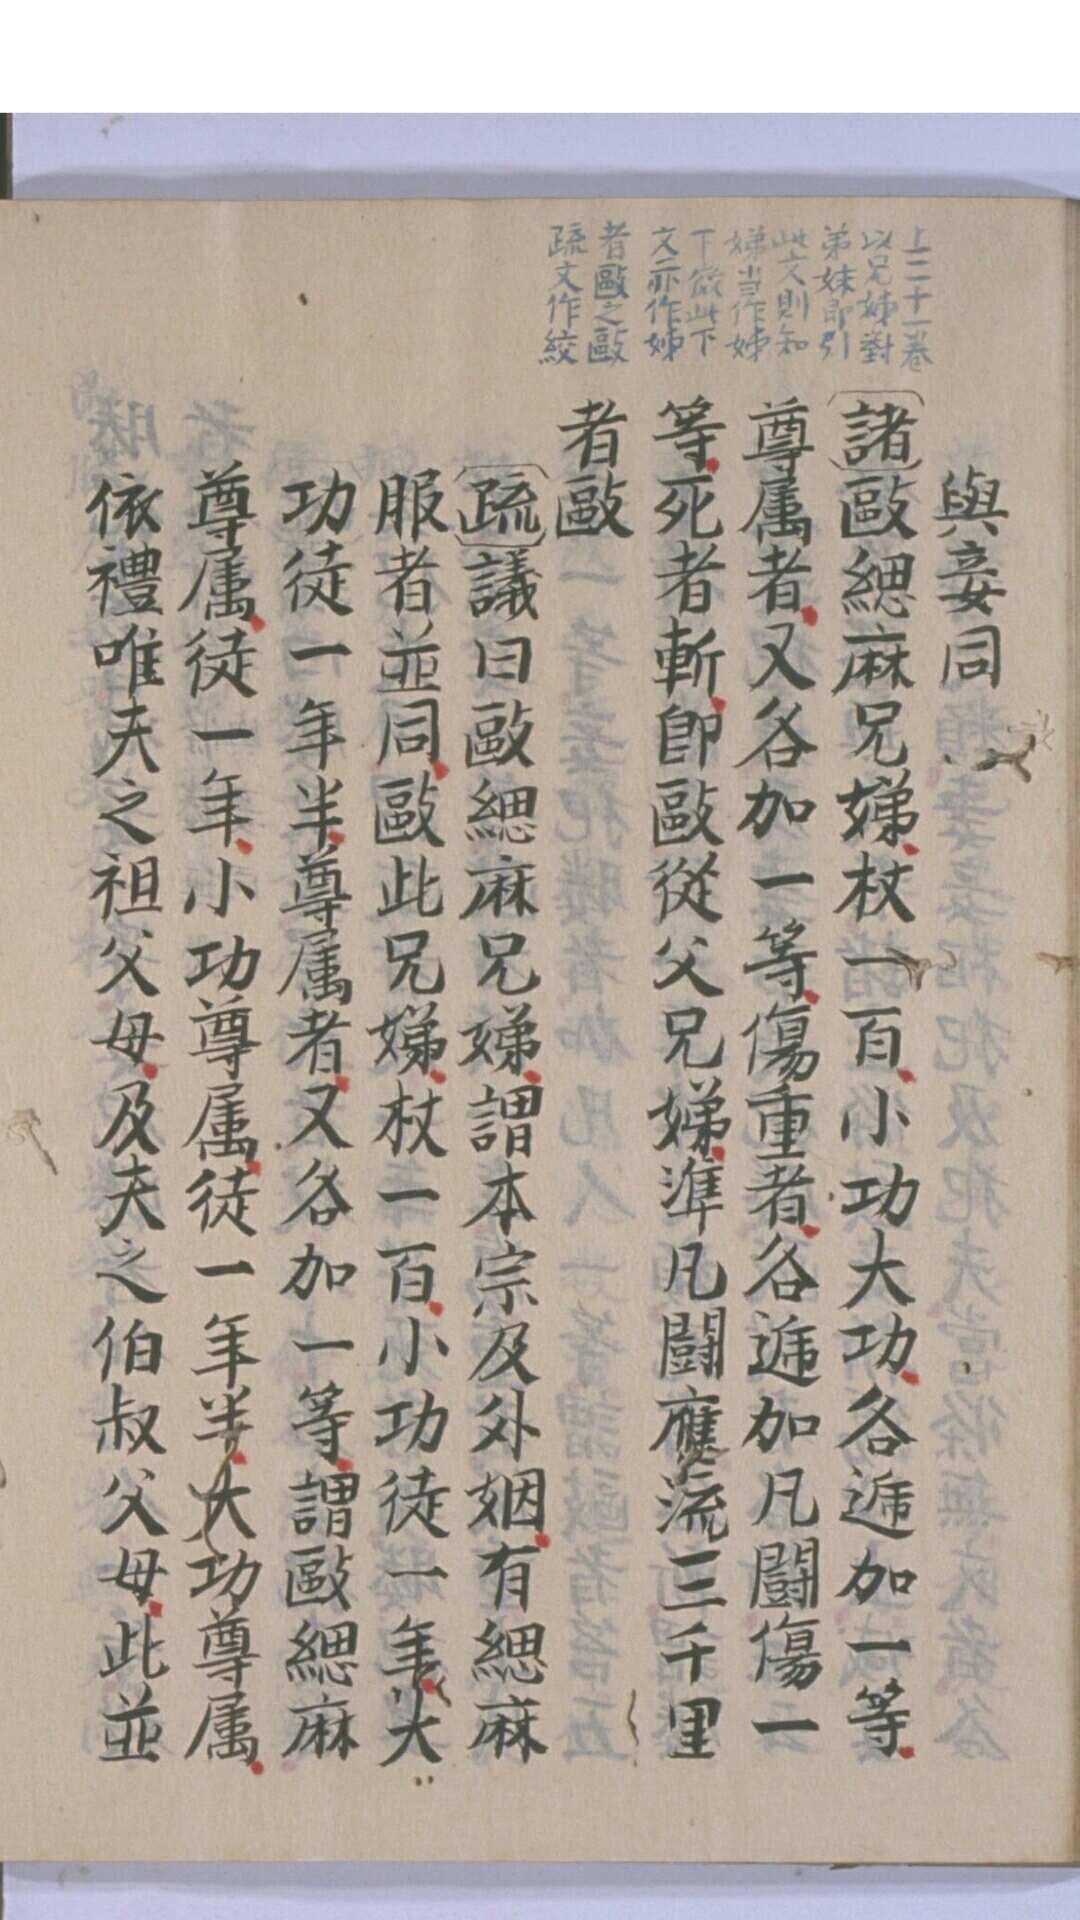 上二十一卷
以兄姊對
弟妹即引
此文則知
娣当作姊
下倣此下
文亦作姊
者毆之毆
疏文作絞
與妾同
諸毆緦麻兄娣杖一百小功大功各遞加一等
尊属者又各加一等傷重者各遞加凡闘傷一
等死者斬即毆從父兄娣準凡闘應流三千里
者毆
疏議曰毆緦麻兄娣謂本宗及外姻有緦麻
服者並同毆此兄娣杖一百小功徒一年大
功徒一年半尊属者又各加一等謂毆緦麻
尊属徒一年小功尊属徒一年半大功尊属
依禮唯夫之祖父母及夫之伯叔父母此並